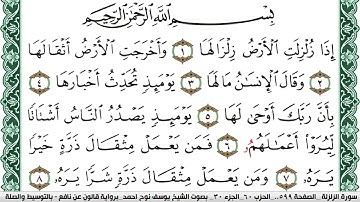 بِسْمِ اللَّهِ الرَّحْمَٰنِ الرَّحِيمِ
إِذَا زُلْزِلَتِ الْأَرْضُ زِلْزَالَهَا ١ وَأَخْرَجَتِ الْأَرْضُ أَثْقَالَهَا
٢ وَقَالَ الْإِنسَٰنُ مَا لَهَا ٣ يَوْمَئِذٍ تُحَدِّثُ أَخْبَارَهَا ٤
بِأَنَّ رَبَّكَ أَوْحَىٰ لَهَا ٥ يَوْمَئِذٍ يَصْدُرُ النَّاسُ أَشْتَاتًا
لِّيُرَوْا أَعْمَٰلَهُمُۥ ٦ فَمَن يَعْمَلْ مِثْقَالَ ذَرَّةٍ خَيْرًا
يَرَهُۥ ٧ وَمَن يَعْمَلْ مِثْقَالَ ذَرَّةٍ شَرًّا يَرَهُۥ ٨
سورة الزلزلة . الصفحة ٥٩٩ . الحزب ٦٠ . الجزء ٣٠ . بصوت الشيخ يوسف نوح أحمد . برواية قالون عن نافع - بالتوسيط والصلة